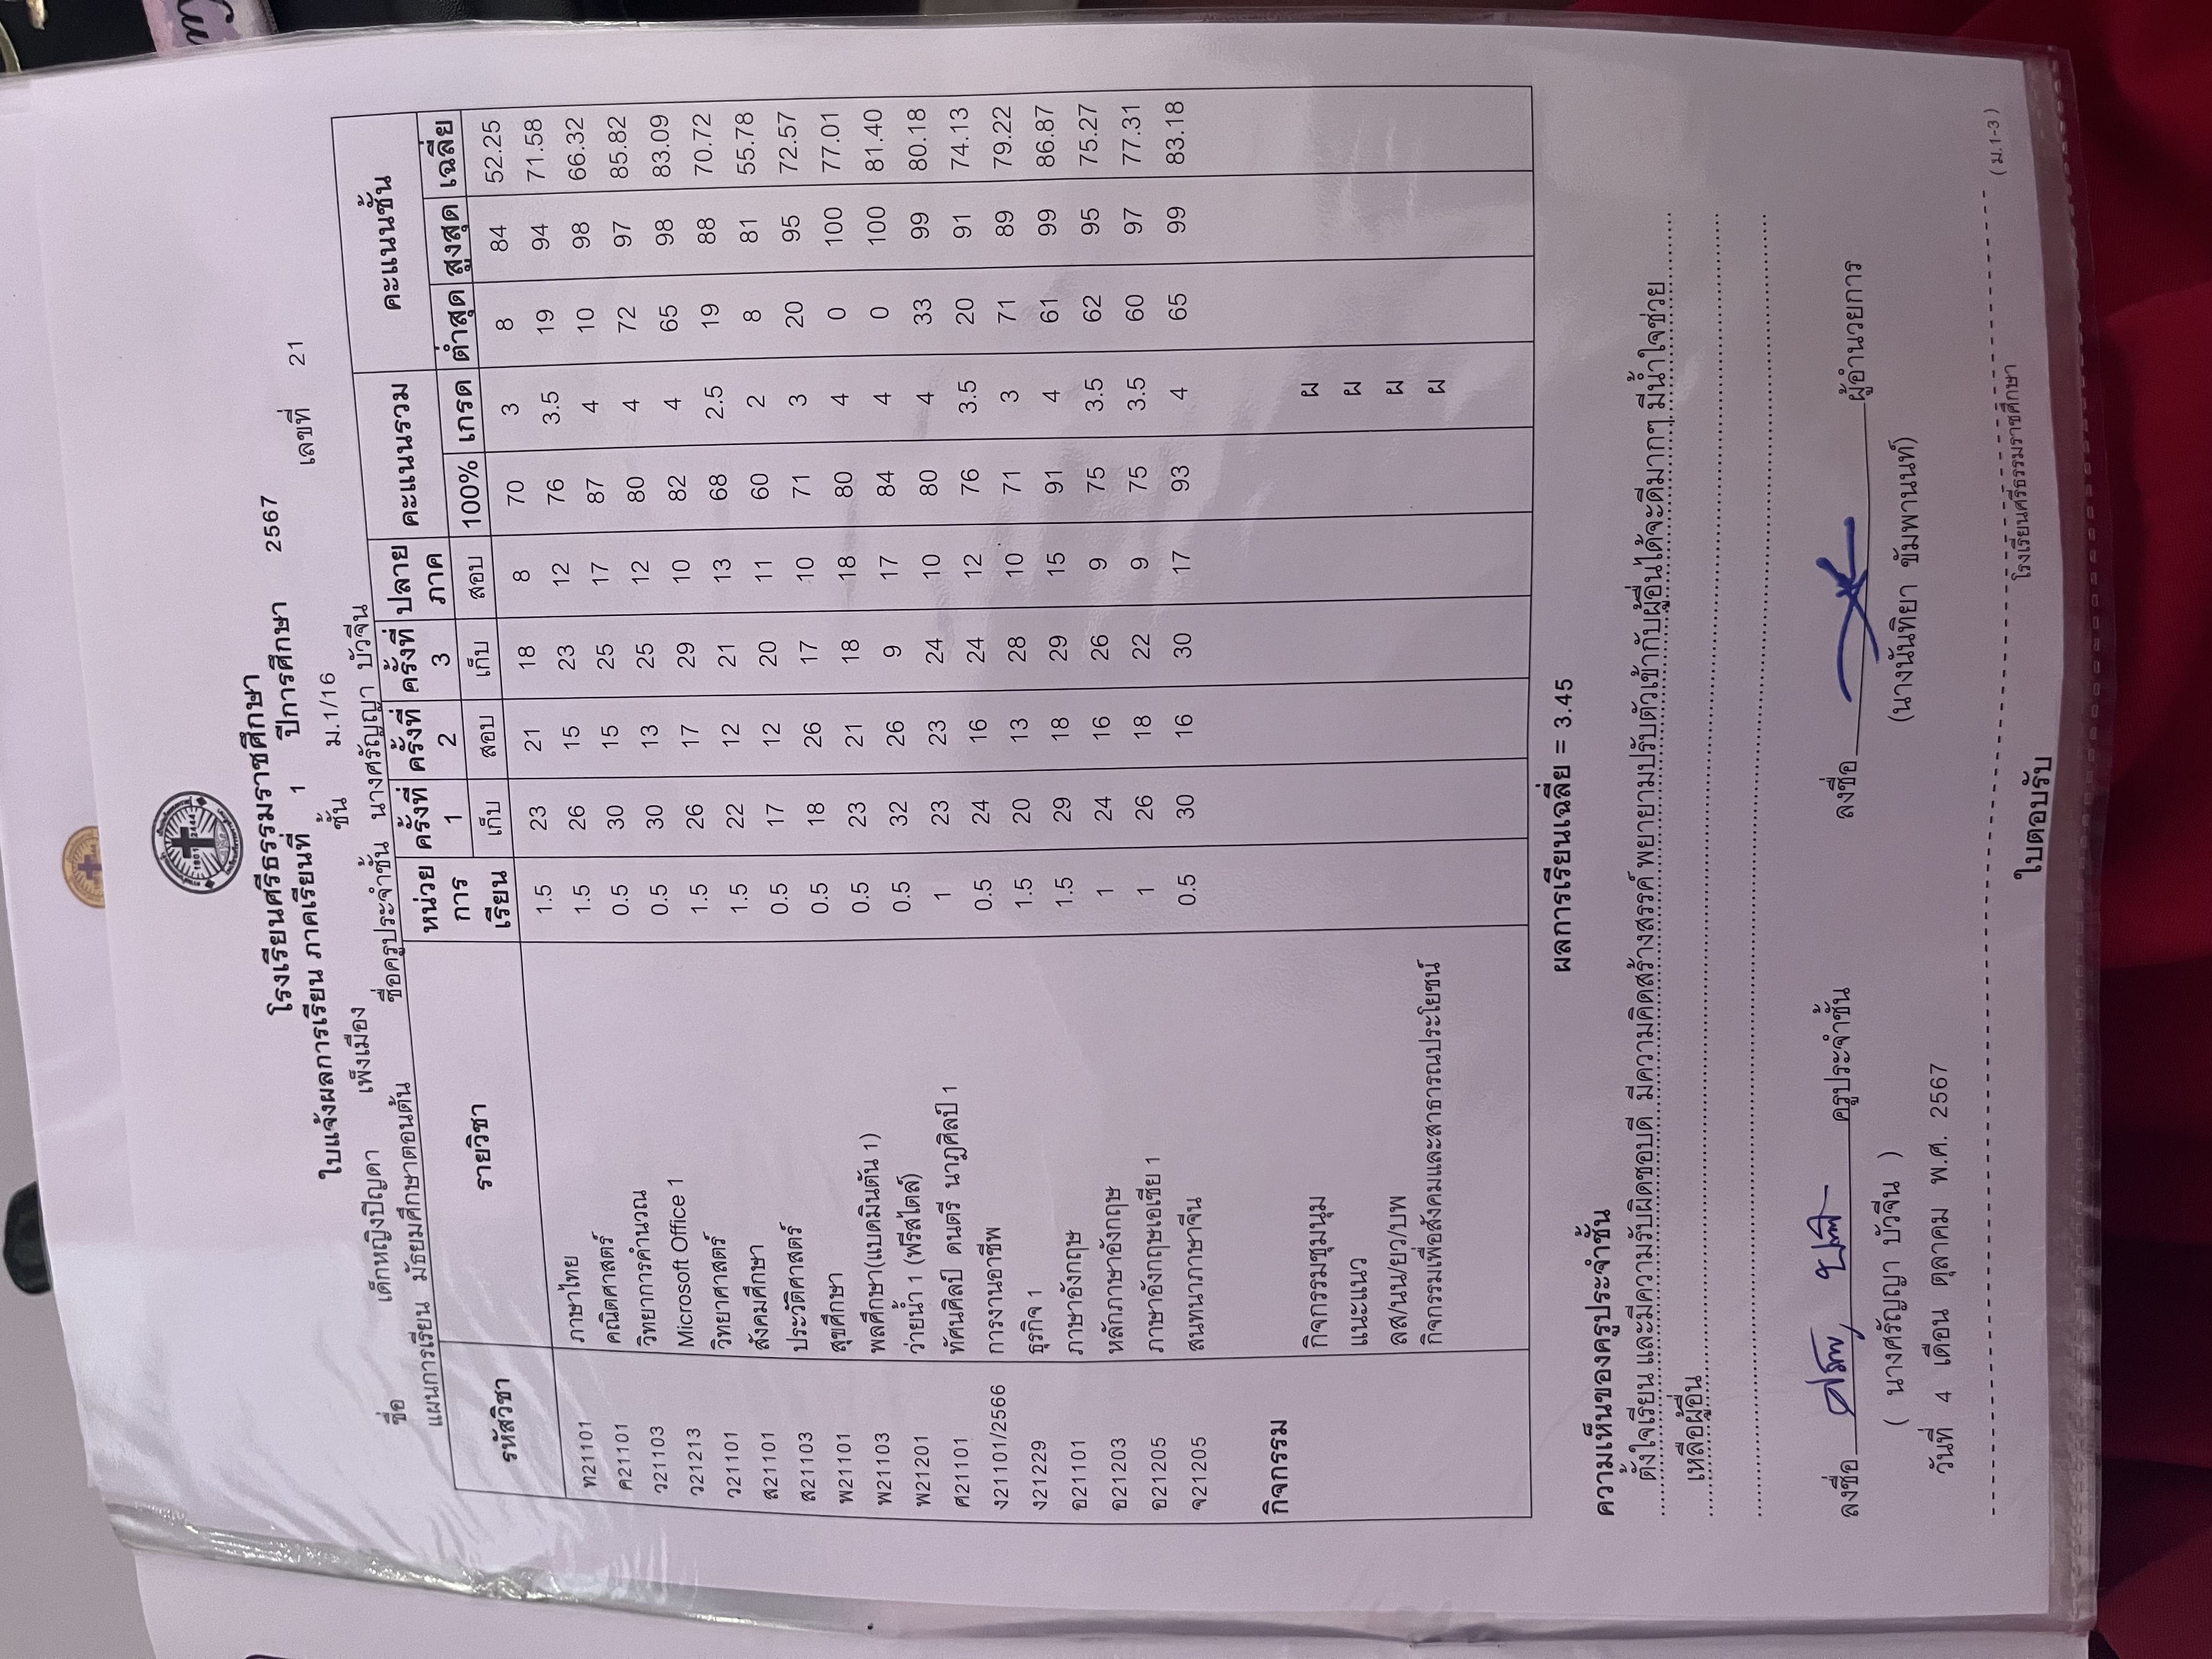 โรงเรียนศรีธรรมราชศึกษา
ใบแจ้งผลการเรียน ภาคเรียนที่ 1 ปีการศึกษา 2567
ชั้น ม.1/16 เลขที่ 21
ชื่อ เด็กหญิงปิญดา เพ็งเมือง
แผนการเรียน มัธยมศึกษาตอนต้น ชื่อครูประจำชั้น นางศรัญญา บัวจีน
รหัสวิชา รายวิชา หน่วยการเรียน ครั้งที่ 1 เก็บ ครั้งที่ 2 สอบ ครั้งที่ 3 เก็บ ปลายภาค สอบ คะแนนรวม 100% เกรด คะแนนชั้น ต่ำสุด สูงสุด เฉลี่ย
ท21101 ภาษาไทย 1.5 23 21 18 8 70 3 8 84 52.25
ค21101 คณิตศาสตร์ 1.5 26 15 23 12 76 3.5 19 94 71.58
ว21103 วิทยาการคำนวณ 0.5 30 15 25 17 87 4 10 98 66.32
ว21213 Microsoft Office 1 0.5 30 13 25 12 80 4 72 97 85.82
ว21101 วิทยาศาสตร์ 1.5 26 17 29 10 82 4 65 98 83.09
ส21101 สังคมศึกษา 1.5 22 12 21 13 68 2.5 19 88 70.72
ส21103 ประวัติศาสตร์ 0.5 17 12 20 11 60 2 8 81 55.78
พ21101 สุขศึกษา 0.5 18 26 17 10 71 3 20 95 72.57
พ21103 พลศึกษา(แบดมินตัน 1) 0.5 23 21 18 18 80 4 0 100 77.01
พ21201 ว่ายน้ำ 1 (ฟรีสไตล์) 0.5 32 26 9 17 84 4 0 100 81.40
ศ21101 ทัศนศิลป์ ดนตรี นาฏศิลป์ 1 1 23 23 24 10 80 4 33 99 80.18
ง21101/2566 การงานอาชีพ 0.5 24 16 24 12 76 3.5 20 91 74.13
ง21229 ธุรกิจ 1 1.5 20 13 28 10 71 3 71 89 79.22
อ21101 ภาษาอังกฤษ 1.5 29 18 29 15 91 4 61 99 86.87
อ21203 หลักภาษาอังกฤษ 1 24 16 26 9 75 3.5 62 95 75.27
อ21205 ภาษาอังกฤษเอเชีย 1 1 26 18 22 9 75 3.5 60 97 77.31
จ21205 สนทนาภาษาจีน 0.5 30 16 30 17 93 4 65 99 83.18
กิจกรรม
กิจกรรมชุมนุม ผ
แนะแนว ผ
ลส/นน/ยว/บพ ผ
กิจกรรมเพื่อสังคมและสาธารณประโยชน์ ผ
ผลการเรียนเฉลี่ย = 3.45
ความเห็นของครูประจำชั้น
ตั้งใจเรียน และมีความรับผิดชอบดี มีความคิดสร้างสรรค์ พยายามปรับตัวเข้ากับผู้อื่นได้จะดีมากๆ มีน้ำใจช่วย
เหลือผู้อื่น
ลงชื่อ ครูประจำชั้น ลงชื่อ ผู้อำนวยการ
( นางศรัญญา บัวจีน ) (นางนันทิยา ขัมพานนท์)
วันที่ 4 เดือน ตุลาคม พ.ศ. 2567
( ม.1-3 )
โรงเรียนศรีธรรมราชศึกษา
ใบตอบรับ